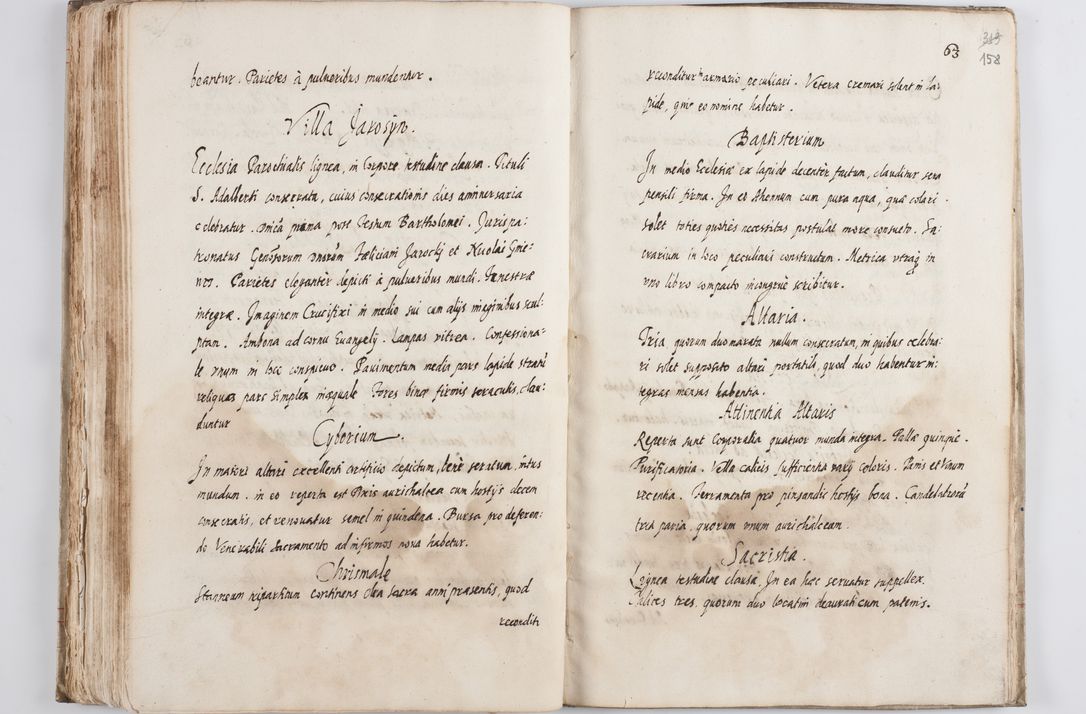 beantur. Parietes à pulueribus mundentur.
Villa Jarosyn.
Ecclesia Parochialis lignea, in corpore testudine clausa. Tituli
S. Adalberti consecrata, cuius consecrationis dies anniuersaria
celebratur Dnica prima post Festum Bartholomei. Jurispa:
tronatus Genosorum Dnorum Fæliciani Jarocky et Nicolai Gnie:
wos. Parietes eleganter depicti à pulueribus mundi. Fenestræ
integræ. Imaginem Crucifixi in medio sui cum alijs imaginibus scul:
ptam. Ambona ad cornu Euangelij. Lampas vitrea. Confessiona:
le vnum in loco conspicuo. Pauimentum media pars lapide strati
reliqua pars simplex inæquale Fores binæ firmis seraculis, clau:
duntur
Cyborium.
In maiori altari excellenti artificio depictum, bene seratum, intus
mundum. in eo reperta est Pixis aurichalcea cum hostijs decem
consecratis, et renouatur semel in quindena. Bursa pro deferen:
do Venerabili Sacramento ad infirmos noua habetur.
Chrismale
Stanneum tripartitum continens olea sacra anni præsentis, quod
recondit
63
319
158
reconditur in armario peculiari. Vetera cremari solent in la:
pide, qui eo nomine habetur.
Baptisterium
In medio Ecclesiæ ex lapide decenter factum, clauditur sera
pensili firma. In eo Ahenum cum pura aqua, quæ colari
solet toties quoties necessitas postulat more consueto. Sa:
crarium in loco peculiari constructum. Metrica vtraq in
vno libro compacto incongrue scribitur.
Altaria.
Tria quorum duo murata nullum consecratum, in quibus celebra:
ri solet supposito altari portatili, quod duo habentur in:
tegras mensas habentia.
Attinentia Altaris
Reperta sunt Corporalia quatuor munda integra. Pallæ quinque.
Purificatoria. Vella calicis sufficientia varij coloris. Panis et Vinum
recentia. Ferramenta pro pinsandis hostijs bona. Candelabrorum
tria paria, quorum vnum aurichalceum.
Sacristia.
Lignea testudine clausa, In ea hæc seruatur suppellex.
Calices tres, quorum duo locatim deaurati cum patenis.